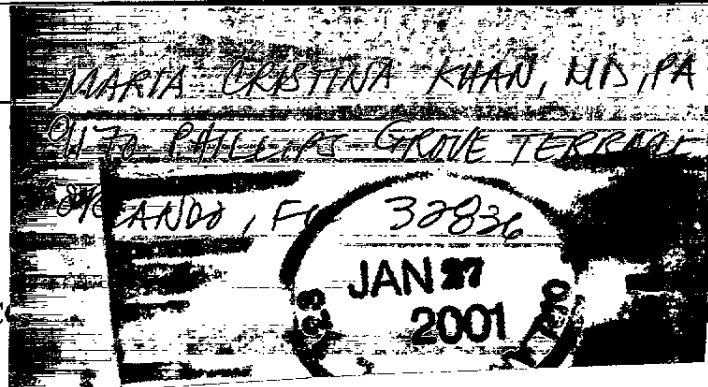 MARIA CRISTINA KHAN, MD, PA
PHILLIPS GROVE TERRACE
ORLANDO, FL 32836
JAN 27
2001